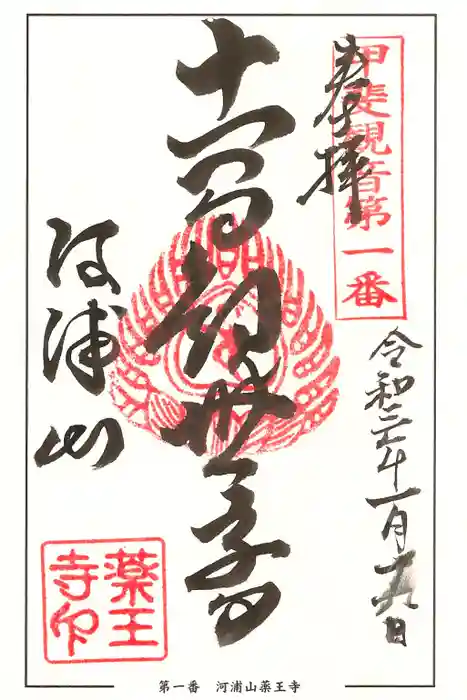 甲斐観音第一番
奉拝
令和三年一月
十一面観世音
河浦山
薬王寺印
第一番　河浦山薬王寺